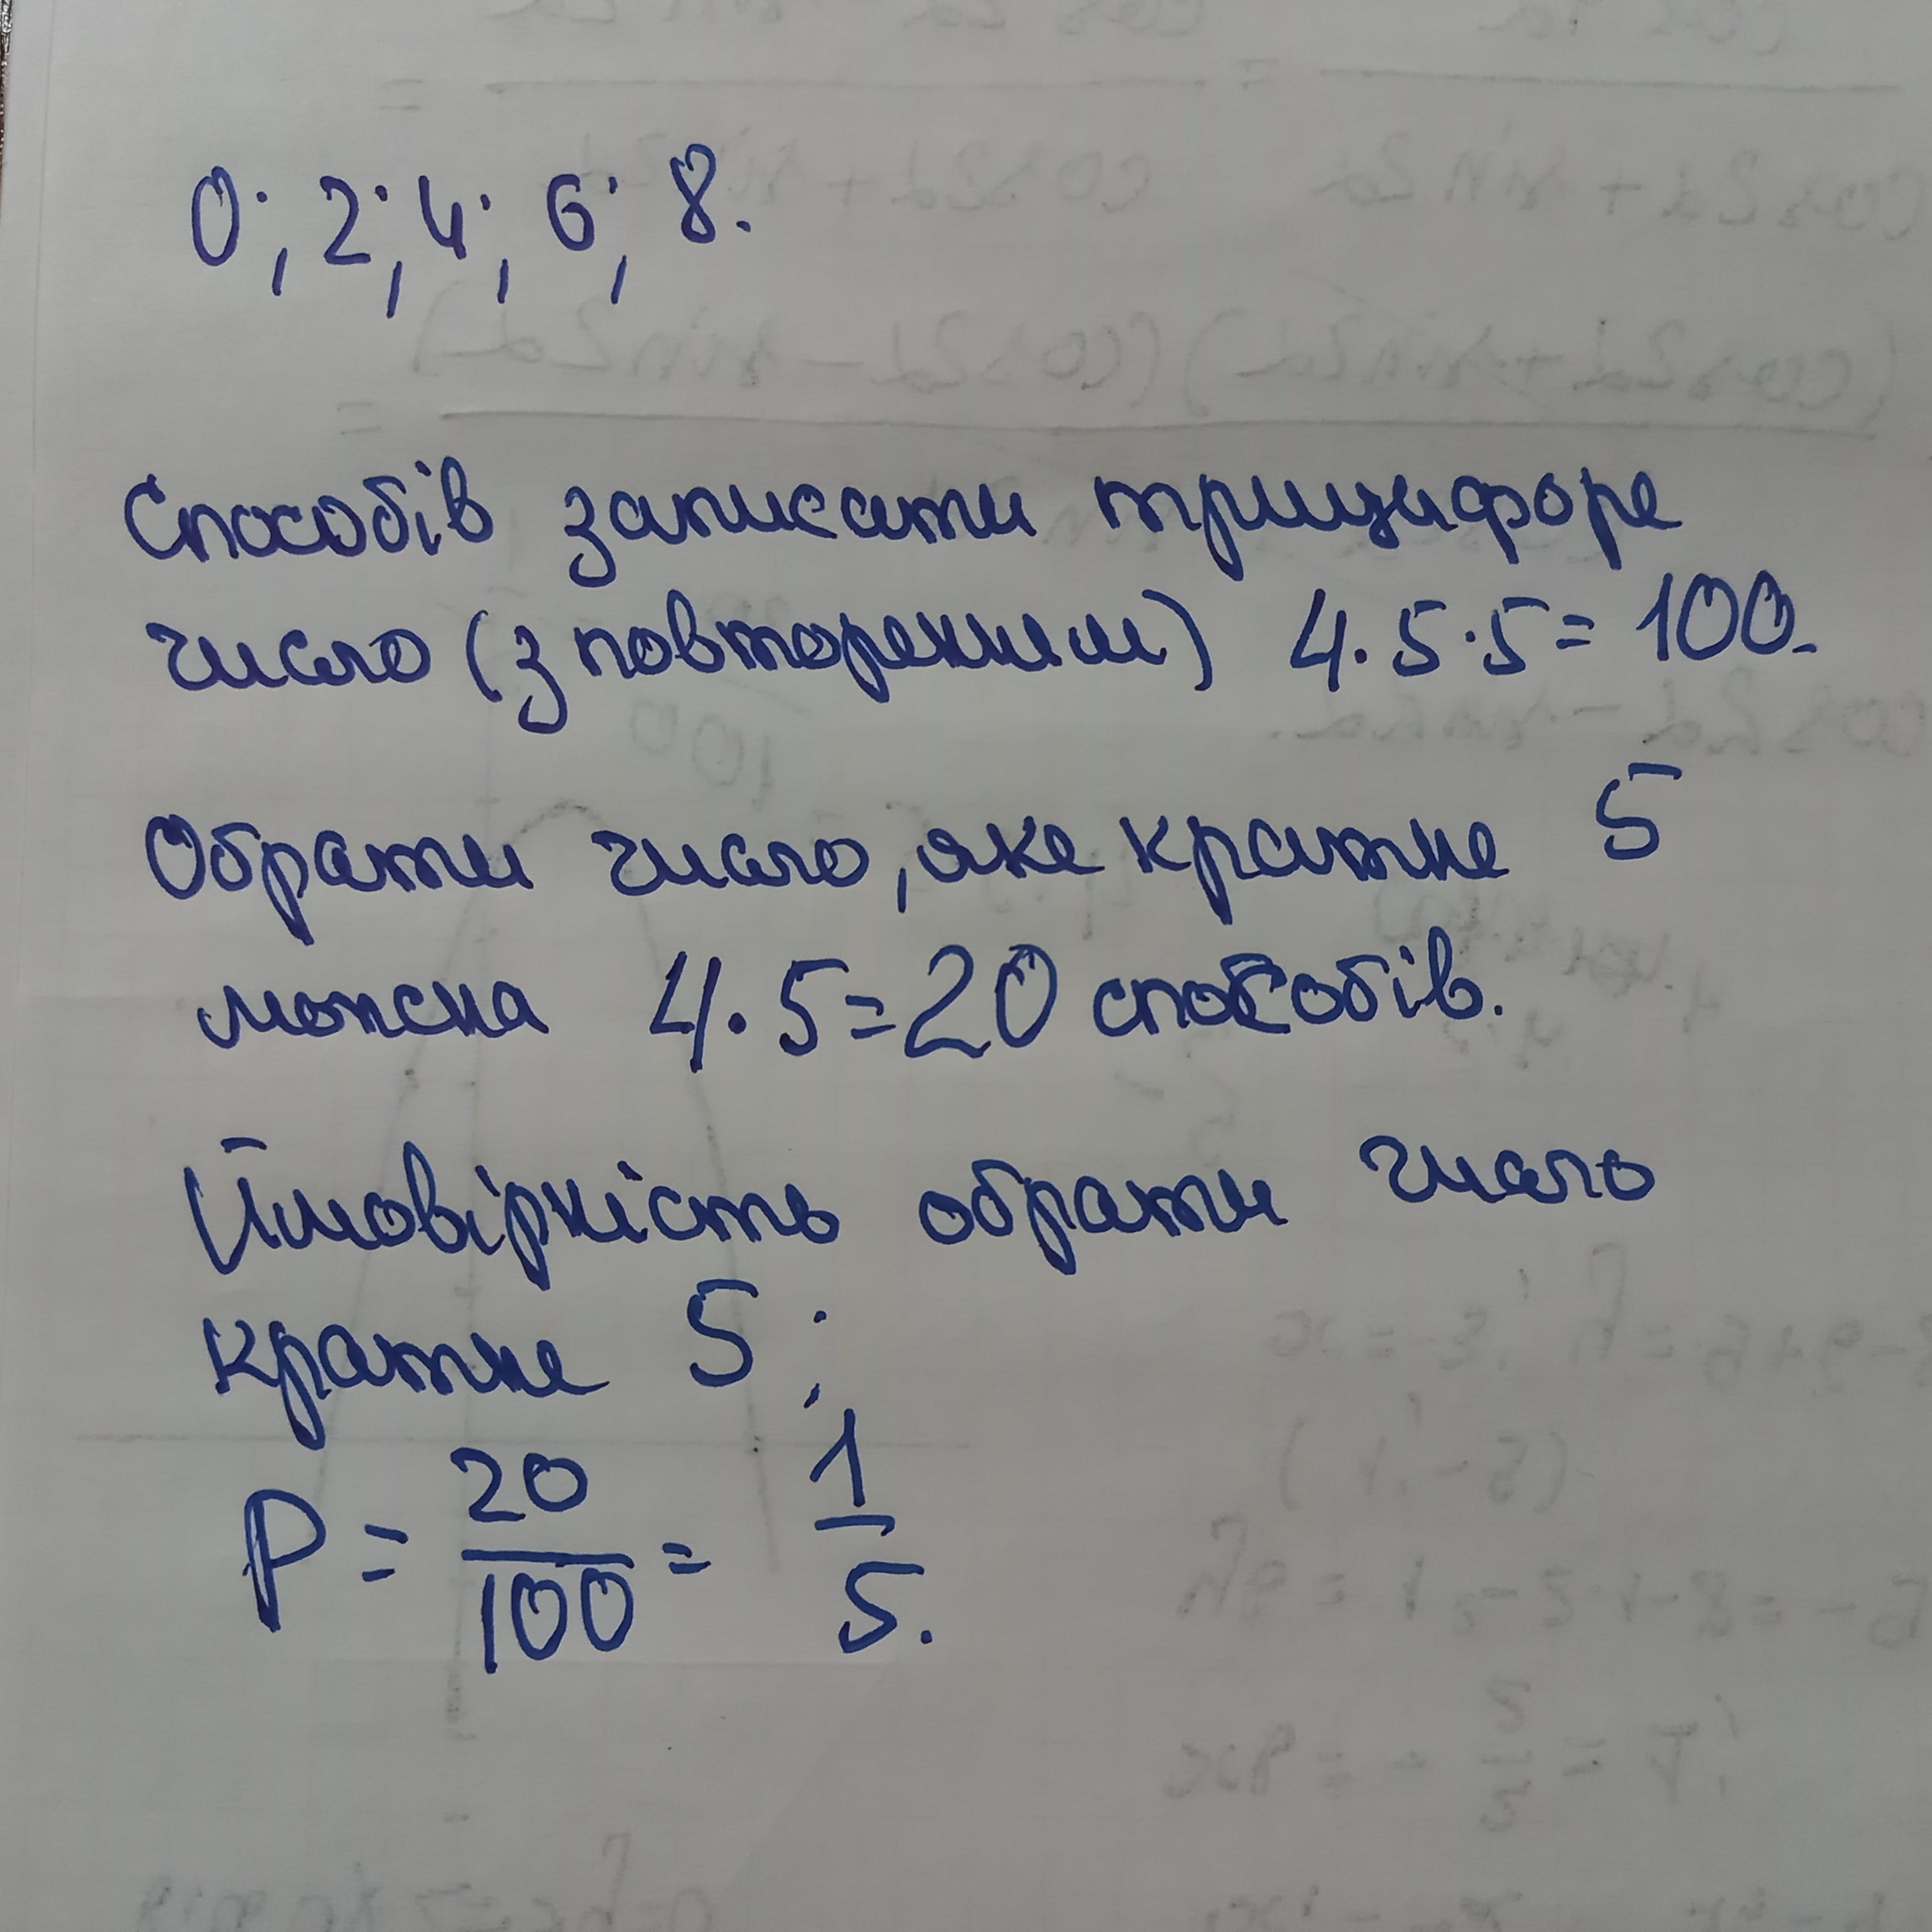 0; 2; 4; 6; 8.
Способів записати трицифоре
число (з повторенням) 4·5·5=100.
Обрати число, яке кратне 5
можна 4·5=20 способів.
Ймовірність обрати число
кратне 5:
P = 20/100 = 1/5.